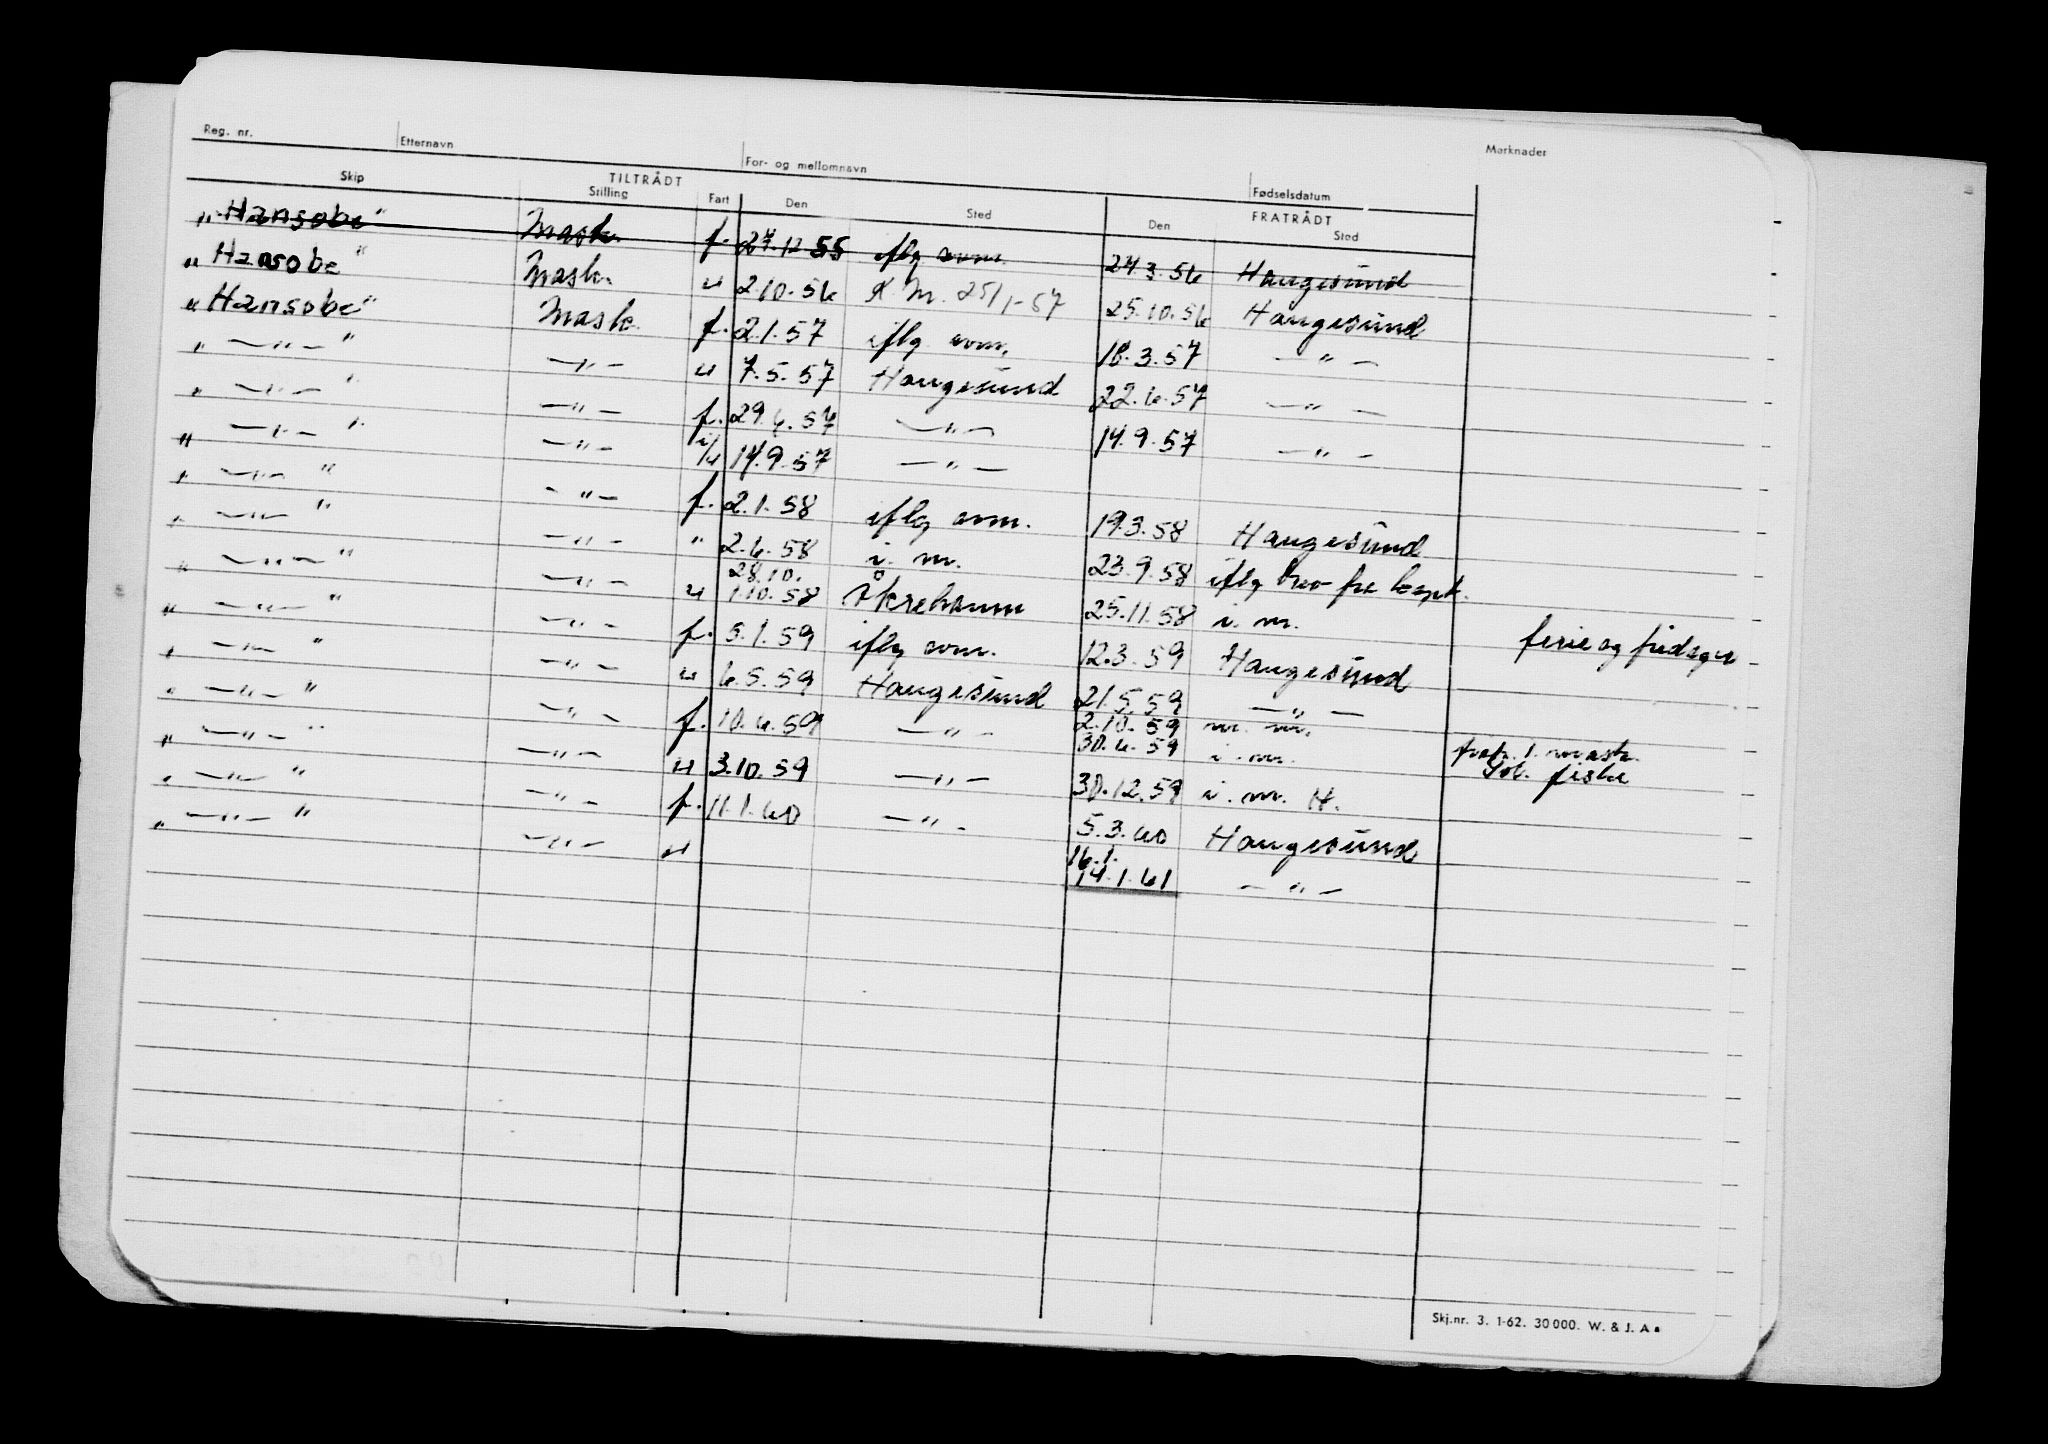 Reg. nr. Etternavn For- og mellomnavn Fødselsdatum Merknader
TILTRÅDT FRATRÅDT
Skip Stilling Fart Den Sted Den Sted
"Hansobe" Mask. f. 27.12.55 iflg. 24.3.56 Haugesund
"Hansobe" Mask. u 2.10.56 K.M. 25/1-57 25.10.56 Haugesund
"Hansobe" Mask. f. 2.1.57 iflg. 18.3.57 — " —
" — " — " — " — u 7.5.57 Haugesund 22.6.57 — " —
" — " — " — " — f. 29.6.57 — " — 14.9.57 — " —
" — " — " — " — i/u 14.9.57 — " —
" — " — " — " — f. 2.1.58 iflg. 19.3.58 Haugesund
" — " — " — " — " 2.6.58 i. m. 23.9.58 iflg brev fra
28.10.
" — " — " — " — u 1.10.58 Åkrehamn 25.11.58 i. m. ferie og fridager
" — " — " — " — f. 5.1.59 iflg. 12.3.59 Haugesund
" — " — " — " — u 6.5.59 Haugesund 21.5.59 — " —
2.10.59
" — " — " — " — f. 10.6.59 — " — 30.6.59 i. m. 1. mask.
fiske
" — " — " — " — u 3.10.59 — " — 30.12.59 i. m. H.
" — " — " — " — f. 11.1.60 — " — 5.3.60 Haugesund
16.1.
" — " — " — " — u 14.1.61 — " —
Skj.nr. 3. 1-62. 30 000. W. & J. A